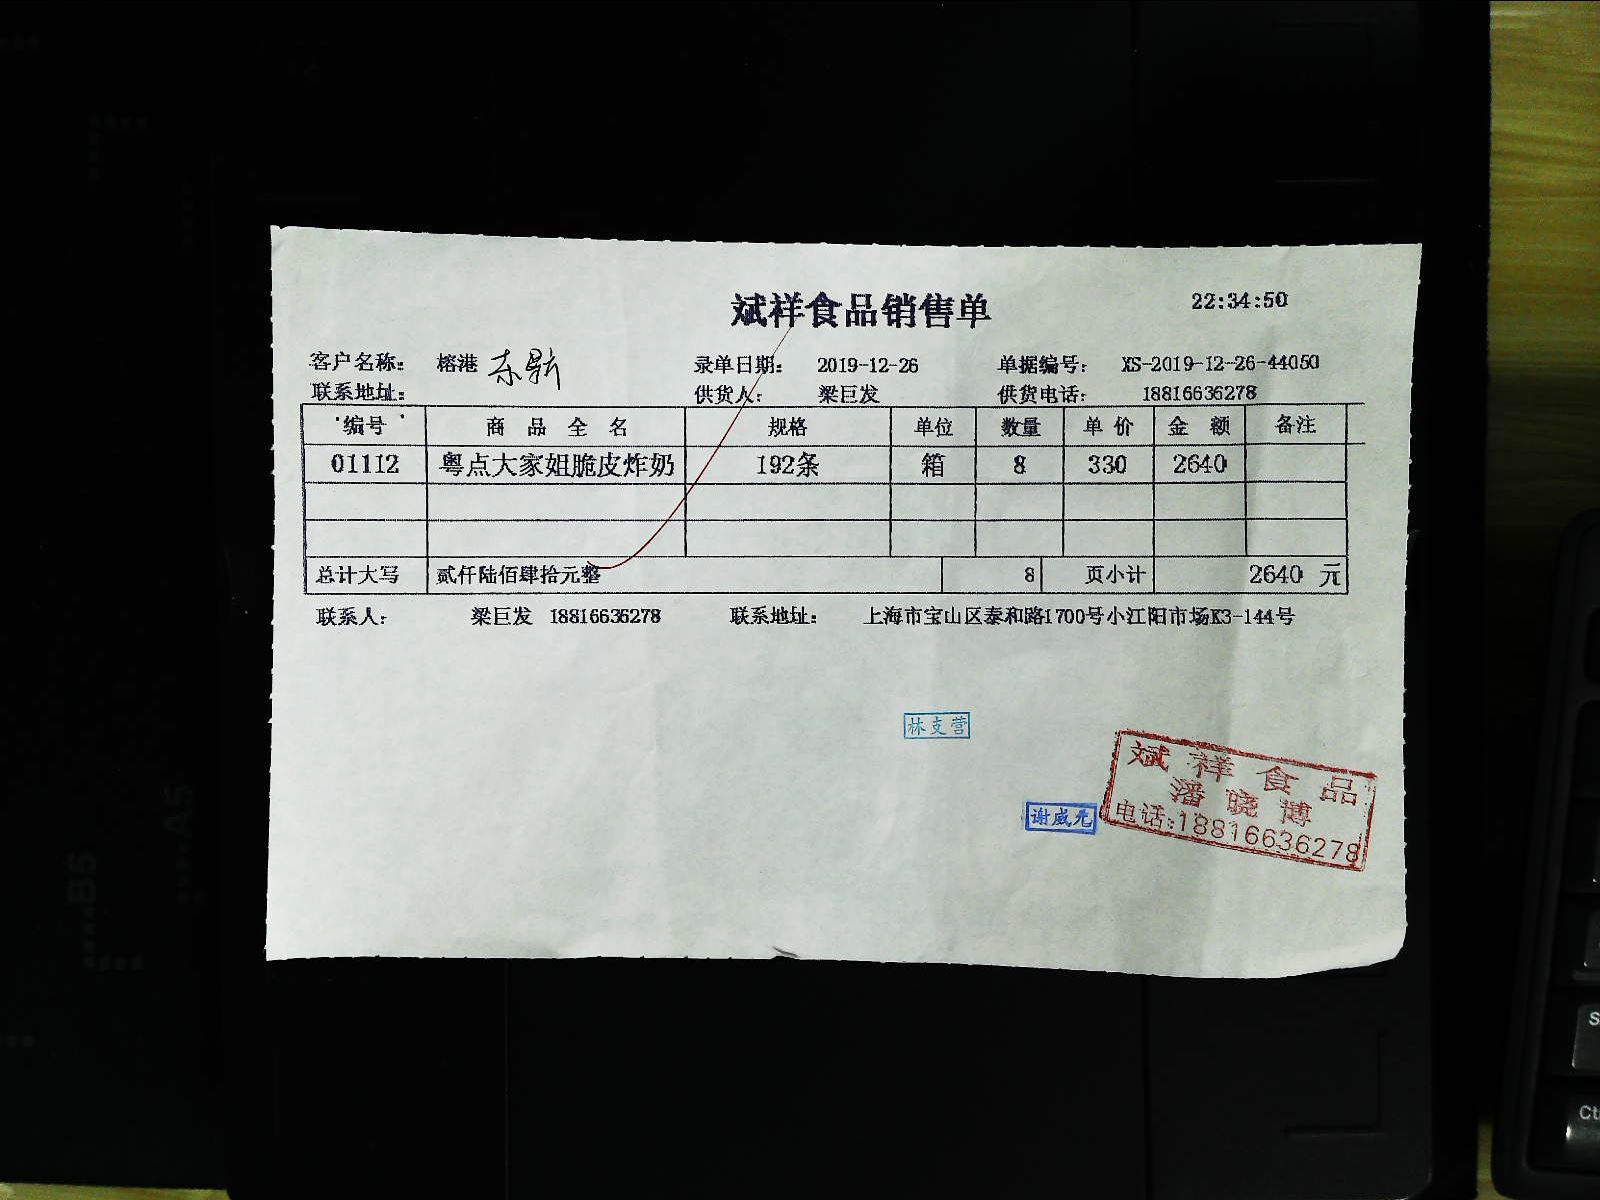 斌祥食品销售单 22:34:50
客户名称: 榕港 东昇 录单日期: 2019-12-26 单据编号: XS-2019-12-26-44050
联系地址: 供货人: 梁巨发 供货电话: 18816636278
编号 商品全名 规格 单位 数量 单价 金额 备注
01112 粤点大家姐脆皮炸奶 192条 箱 8 330 2640
总计大写 贰仟陆佰肆拾元整 8 页小计 2640 元
联系人: 梁巨发 18816636278 联系地址: 上海市宝山区泰和路1700号小江阳市场K3-144号
林支营
斌祥食品
潘晓博
电话:18816636278
谢威
B5
A5
S
Ct